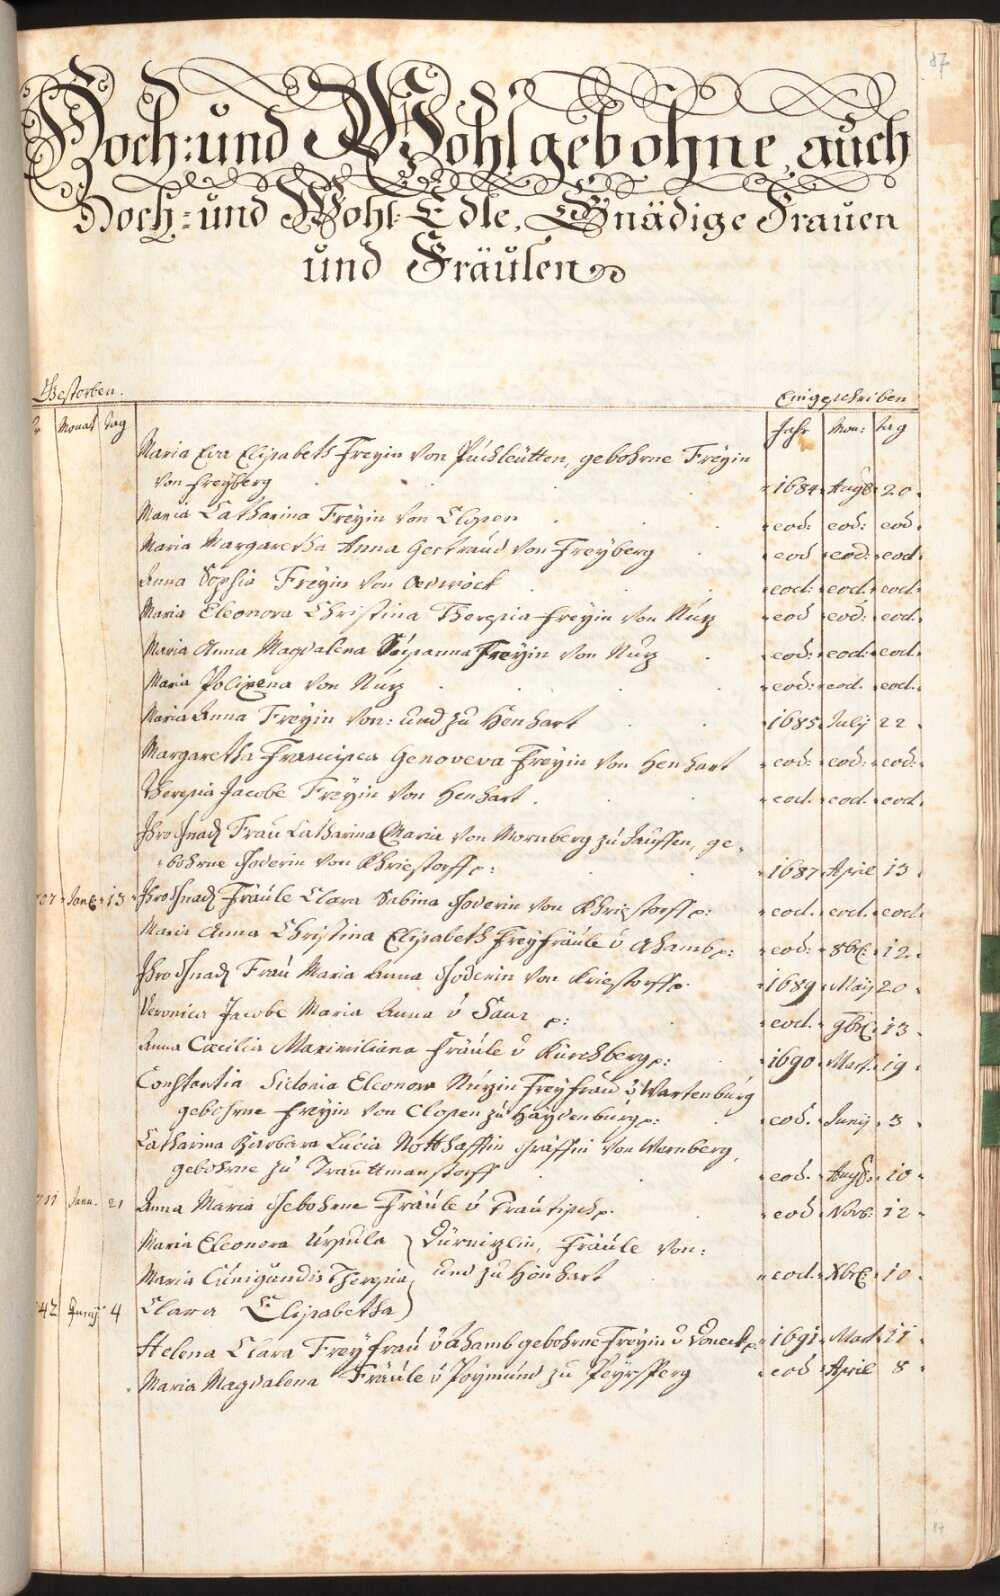 87
Hoch: und Wohlgebohne, auch
Hoch= und Wohl-Edle, Gnädige Frauen
und Fräulen
Gestorben. Eingeschriben
Monat tag Jahr Mon: tag
Maria Eva Elisabeth Freyin von Püchleütten, gebohrne Freyin
von Freyberg 1684 Aug 20
Maria Catharina Freyin von Closen eod: eod: eod
Maria Margaretha Anna Gertraud von Freyberg eod eod: eod
Anna Sophia Freyin von eod: eod. eod.
Maria Eleonora Christina Theresia Freyin von Nüz eod eod: eod.
Maria Anna Magdalena Susanna Freyin von Nuz eod: eod. eod.
Maria Polixena von Nuz eod: eod. eod.
Maria Anna Freyin von: und zu Henhart 1685 July 22
Margaretha Francisca Genoveva Freyin von Henhart eod: eod: eod:
Theresia Jacobe Freyin von Henhart. eod. eod. eod
Ihro Gnad Frau Catharina Maria von Mornberg zu Sauffen, ge-
bohrne Goderin von Khriestorff p: 1687 April 13
07 13 Ihro Gnad Fräule Clara Sabina Goderin von Khriestorff p: eod. eod. eod
Maria Anna Christina Elisabeth Freyfräule v Chamb p: eod: 8br 12
Ihro Gnad Frau Maria Anna Goderin von Kriestorff p. 1689 May 20
Veronica Jacobe Maria Anna v p: eod. 13
Anna Cæcilia Maximiliana Fräule v Kirchberg p: 1690 Mart. 19
Constantia Sidonia Eleonora Nüzin Freyfrau z Wartenburg
gebohrne Freyin von Closen zu Haydenburg p: eod. Juny 3
Catharina Barbara Lucia Notthaffin Gräffin von Wernberg,
gebohrne zu Trauttmanstorff eod. Aug 10
711 Janu. 21 Anna Maria gebohrne Fräule v p. eod Novb: 12
Maria Eleonora Ursula Dürnizlin, Fräule von:
Maria Cunigundis Theresia und zu Hönhart eod. Xbr 10
42 Juny 4 Clara Elisabetha
Helena Clara Freyfrau v Chamb gebohrne Freyin v p 1691 Mart 11
Maria Magdalena Fräule v Poymund zu eod April 8
87